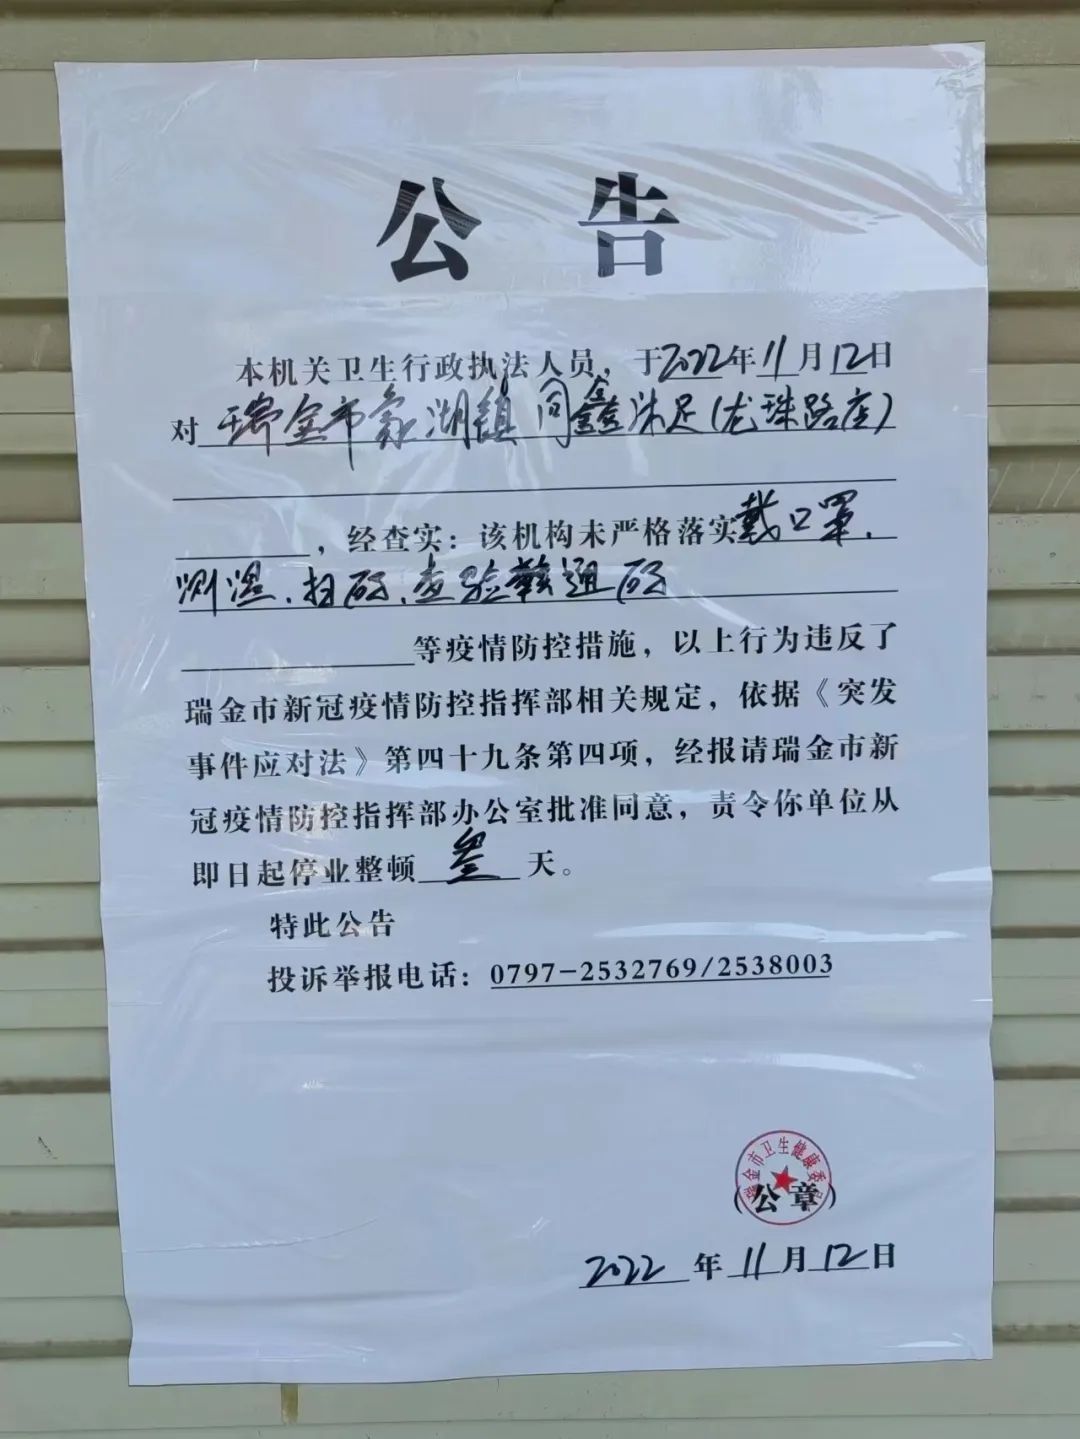 公 告
本机关卫生行政执法人员，于2022年11月12日
对瑞金市象湖镇同鑫沐足(龙珠路店)
，经查实：该机构未严格落实戴口罩、
测温、扫码、查验赣通码
等疫情防控措施，以上行为违反了
瑞金市新冠疫情防控指挥部相关规定，依据《突发
事件应对法》第四十九条第四项，经报请瑞金市新
冠疫情防控指挥部办公室批准同意，责令你单位从
即日起停业整顿叁天。
特此公告
投诉举报电话：0797-2532769/2538003
瑞金市卫生健康委员
（公章）
2022年11月12日